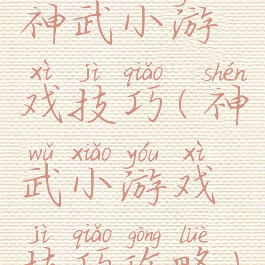 神武小游
xì jì qiǎo shén
戏技巧(神
wǔ xiǎo yóu xì
武小游戏
jì qiǎo gōng lüè
技巧攻略)